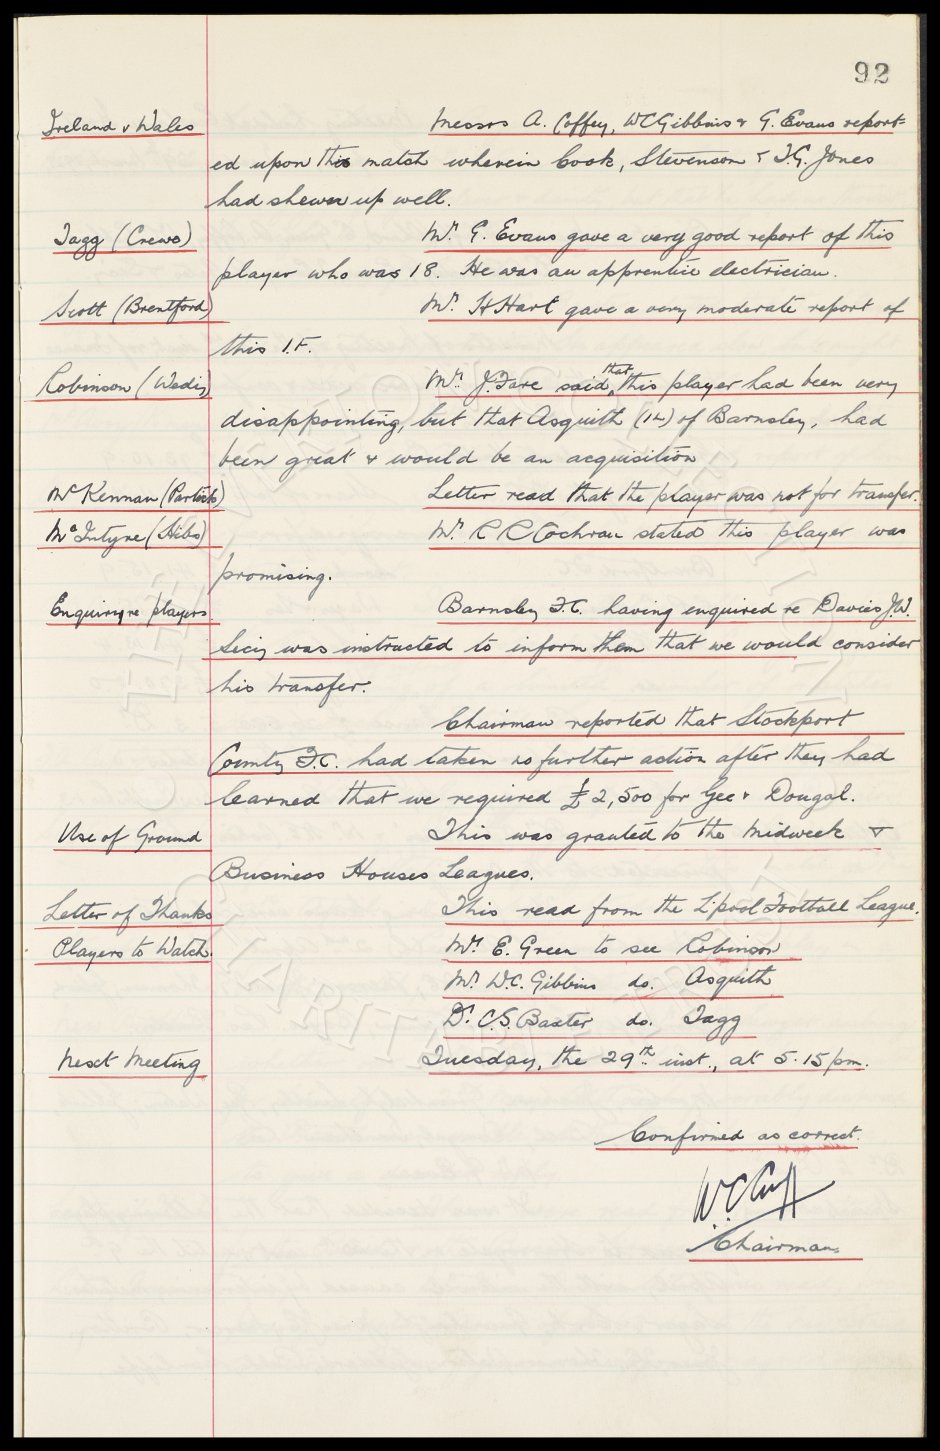 92
Ireland v Wales Messrs A. Coffey, W C Gibbins & G. Evans report-
ed upon this match wherein Cook, Stevenson & T.G. Jones
had shewn up well.
Tagg (Crewe) Mr. G. Evans gave a very good report of this
player who was 18. He was an apprentice electrician.
Scott (Brentford) Mr. H Hart gave a very moderate report of
this I.F.
Robinson (Wedny) Mr. J. Fare said that this player had been very
disappointing, but that Asquith (I L) of Barnsley, had
been great & would be an acquisition
McKennan (Partick) Letter read that the player was not for transfer.
McIntyre (Hibs) Mr. R R Cochran stated this player was
promising.
Enquiry re players Barnsley F.C. having enquired re Davies J.W.
Secy was instructed to inform them that we would consider
his transfer.
Chairman reported that Stockport
County F.C. had taken no further action after they had
learned that we required £2,500 for Gee & Dougal.
Use of Ground This was granted to the Midweek &
Business Houses Leagues.
Letter of Thanks This read from the L'pool Football League.
Players to Watch. Mr. E. Green to see Robinson
Mr. W.C. Gibbins do. Asquith
Dr. C.S. Baxter do. Tagg
Next Meeting Tuesday, the 29th inst., at 5.15 pm.
Confirmed as correct.
W.C. Cuff
Chairman.